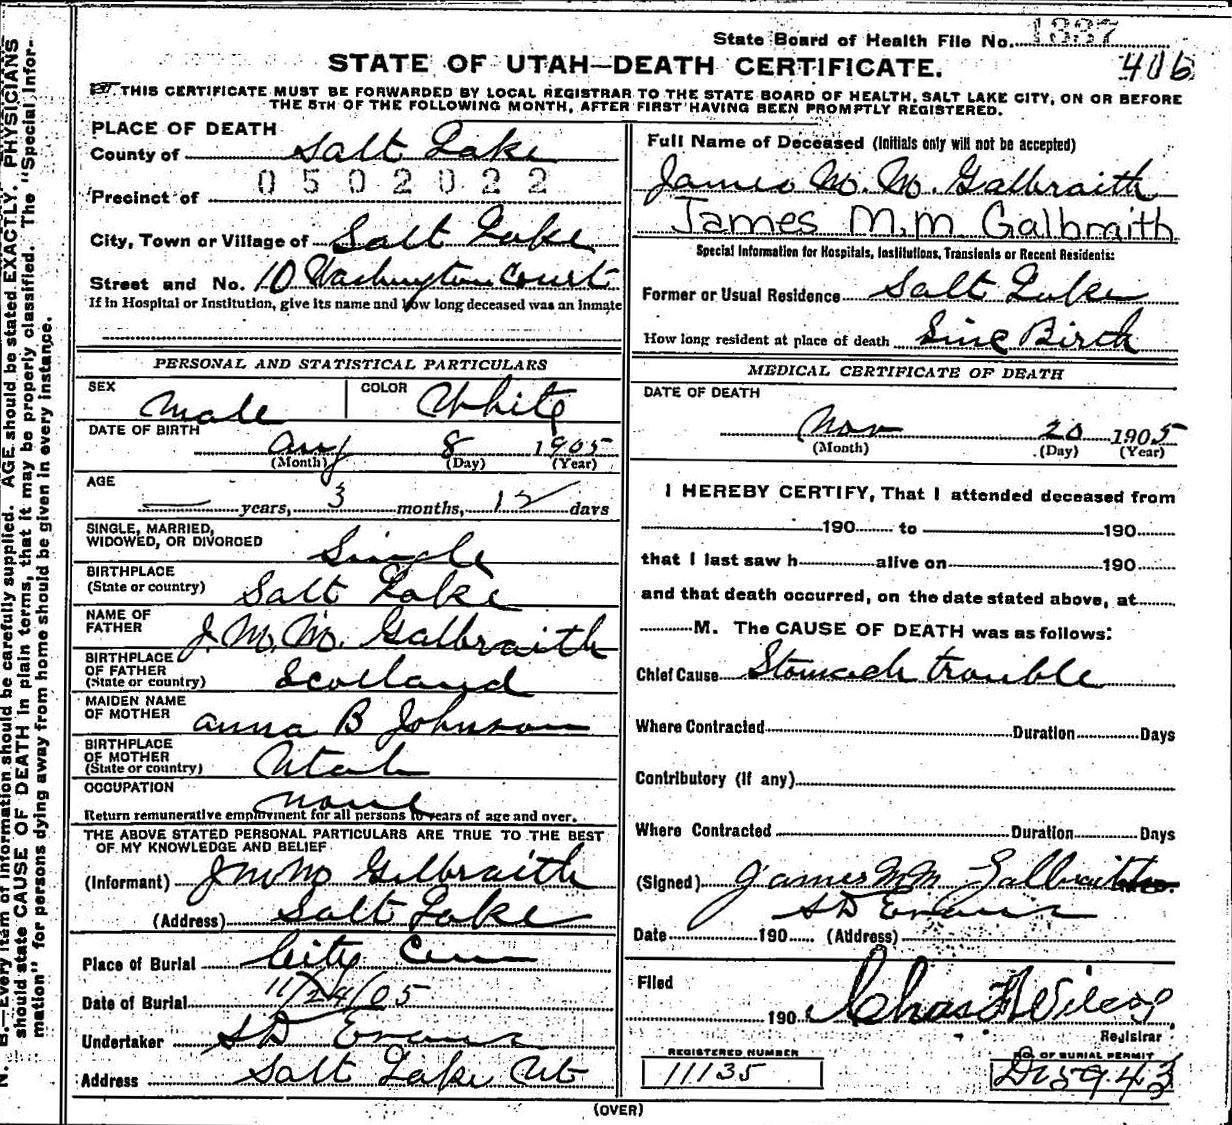 State Board of Health File No. 1887
406
STATE OF UTAH—DEATH CERTIFICATE.
THIS CERTIFICATE MUST BE FORWARDED BY LOCAL REGISTRAR TO THE STATE BOARD OF HEALTH, SALT LAKE CITY, ON OR BEFORE
THE 5TH OF THE FOLLOWING MONTH, AFTER FIRST HAVING BEEN PROMPTLY REGISTERED.
PLACE OF DEATH
County of Salt Lake
0502022
Precinct of
City, Town or Village of Salt Lake
Street and No. 10 Washington Court
If in Hospital or Institution, give its name and how long deceased was an inmate
PERSONAL AND STATISTICAL PARTICULARS
SEX Male COLOR White
DATE OF BIRTH Aug 8 1905
(Month) (Day) (Year)
AGE
— years, 3 months, 12 days
SINGLE, MARRIED,
WIDOWED, OR DIVORCED Single
BIRTHPLACE
(State or country) Salt Lake
NAME OF
FATHER J. M. M. Galbraith
BIRTHPLACE
OF FATHER
(State or country) Scotland
MAIDEN NAME
OF MOTHER Anna B Johnson
BIRTHPLACE
OF MOTHER
(State or country) Utah
OCCUPATION none
Return remunerative employment for all persons 10 years of age and over.
THE ABOVE STATED PERSONAL PARTICULARS ARE TRUE TO THE BEST
OF MY KNOWLEDGE AND BELIEF
(Informant) J M M Galbraith
(Address) Salt Lake
Place of Burial City Cem
Date of Burial 11/24/05
Undertaker S D Evans
Address Salt Lake Ut
Full Name of Deceased (Initials only will not be accepted)
James M. M. Galbraith
James M.M. Galbraith
Special Information for Hospitals, Institutions, Transients or Recent Residents:
Former or Usual Residence Salt Lake
How long resident at place of death Sinc Birth
MEDICAL CERTIFICATE OF DEATH
DATE OF DEATH
Nov 20 1905
(Month) (Day) (Year)
I HEREBY CERTIFY, That I attended deceased from
190 to 190
that I last saw h alive on 190
and that death occurred, on the date stated above, at
M. The CAUSE OF DEATH was as follows:
Chief Cause Stomach trouble
Where Contracted Duration Days
Contributory (If any)
Where Contracted Duration Days
(Signed) James M M Galbraith
S D Evans
Date 190 (Address)
Filed
190 Chas
Registrar
REGISTERED NUMBER
11135
NO. OF BURIAL PERMIT
5943
(OVER)
N. B.—Every item of information should be carefully supplied. AGE should be stated EXACTLY. PHYSICIANS
should state CAUSE OF DEATH in plain terms, that it may be properly classified. The "Special Infor-
mation" for persons dying away from home should be given in every instance.